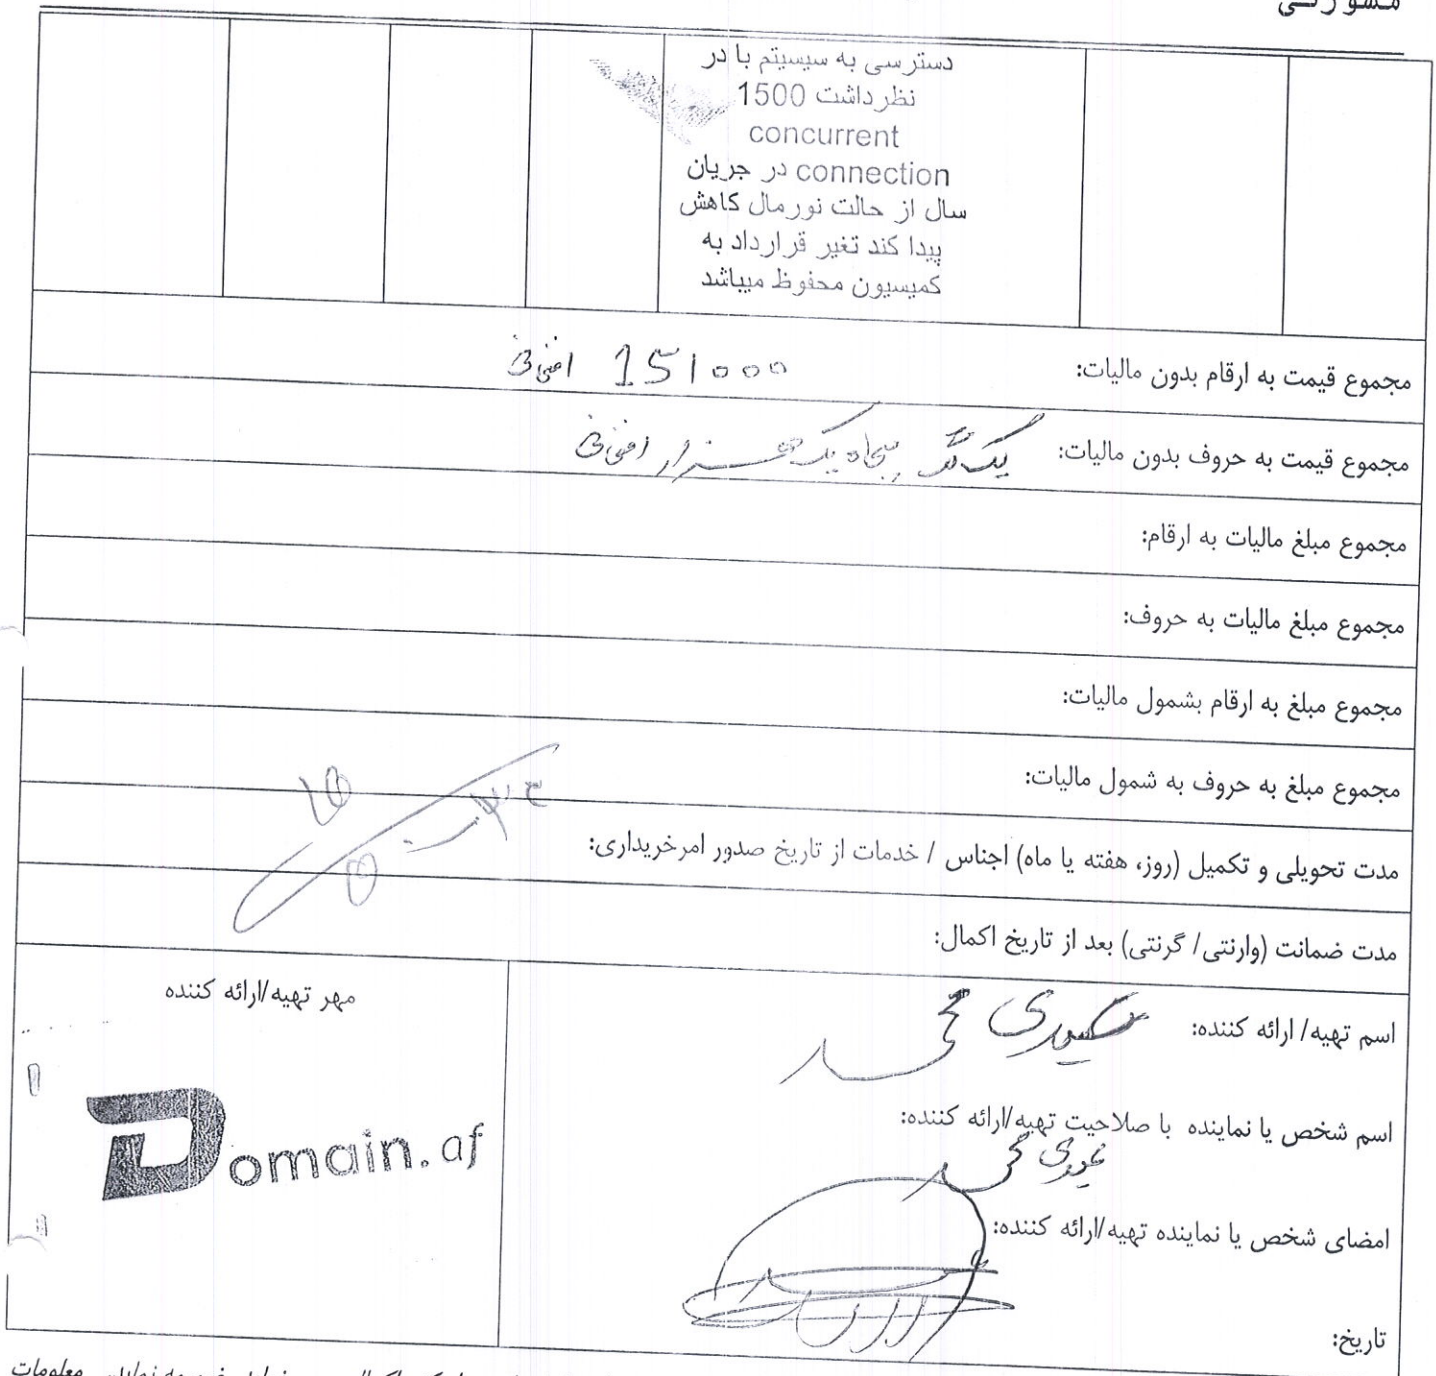 دسترسی به سیسیتم با در
نظر داشت 1500
concurrent
connection در جریان
سال از حالت نورمال کاهش
پیدا کند تغیر قرارداد به
کمیسیون محفوظ میباشد
مجموع قیمت به ارقام بدون مالیات: 151000 افغانی
مجموع قیمت به حروف بدون مالیات: یک لک پنجاه یک هزار افغانی
مجموع مبلغ مالیات به ارقام:
مجموع مبلغ مالیات به حروف:
مجموع مبلغ به ارقام بشمول مالیات:
مجموع مبلغ به حروف به شمول مالیات:
مدت تحویلی و تکمیل (روز، هفته یا ماه) اجناس / خدمات از تاریخ صدور امرخریداری:
مدت ضمانت (وارنتی/ گرنتی) بعد از تاریخ اکمال:
اسم تهیه/ ارائه کننده:
اسم شخص یا نماینده با صلاحیت تهیه/ارائه کننده:
امضای شخص یا نماینده تهیه/ارائه کننده:
تاریخ:
مهر تهیه/ارائه کننده
Domain.af
معلومات